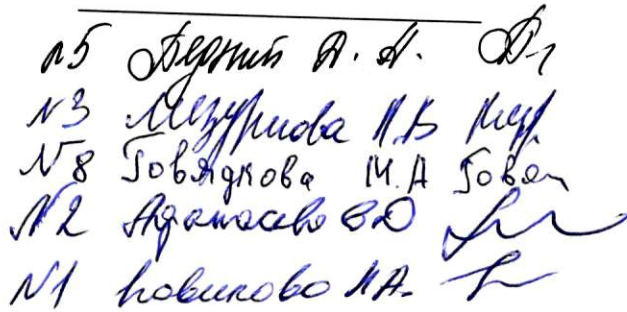 №5 Бедний А. А.
№3 Мезурнова Н В
№8 Говядкова М. А Говяд
№2 Афанасьева ВО
№1 Новикова НА.